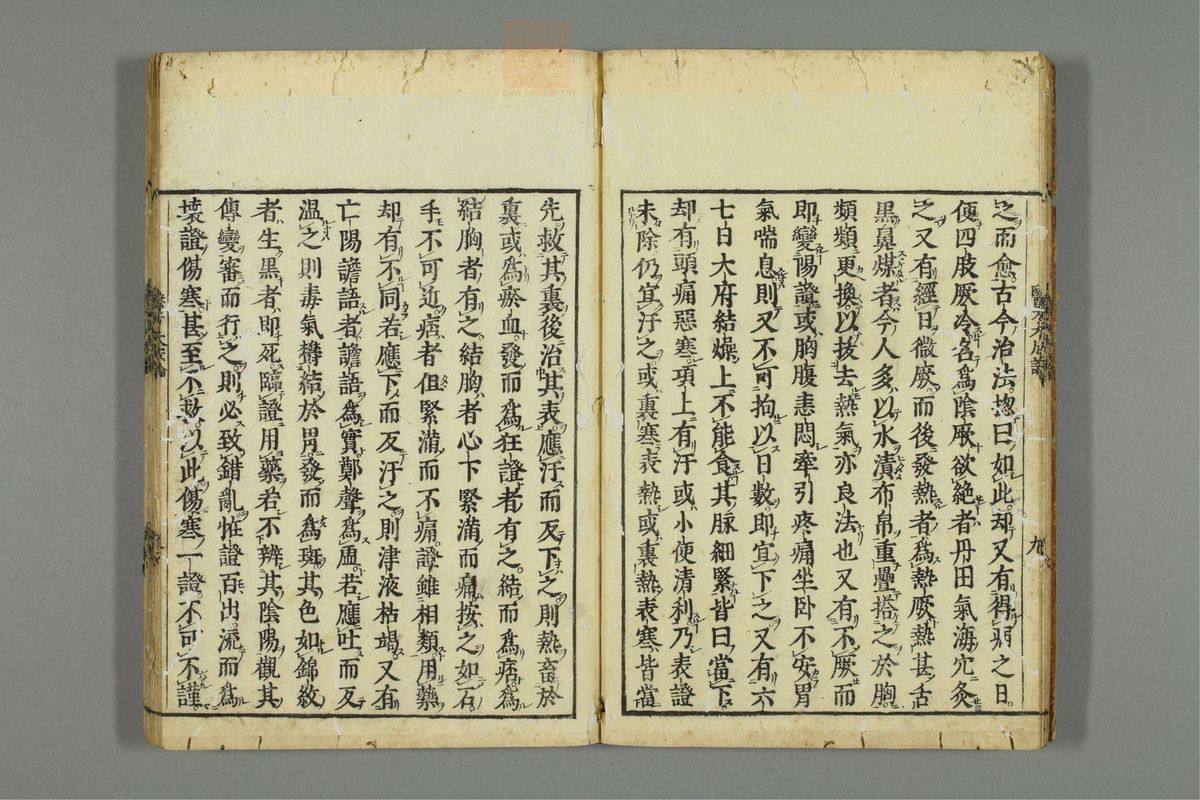 之而愈古今治法揔曰如此却又有得病之日
便四肢厥冷名爲陰厥欲絶者丹田氣海穴灸
之又有經日微厥而後發熱者爲熱厥熱甚舌
黑鼻煤者今人多以水漬布帛重疊搭之於胸
頻頻更換以拔去熱氣亦良法也又有不厥而
即變陽證或胸腹恚悶牽引疼痛坐卧不安胃
氣喘息則又不可拘以日數即宜下之又有六
七日大府結燥上不能食其脉細緊皆曰當下
却有頭痛惡寒項上有汗或小便清利乃表證
未除仍宜汗之或裏寒表熱或裏熱表寒皆當
先救其裏後治其表應汗而反下之則熱畜於
裏或爲瘀血發而爲狂證者有之結而爲痞爲
結胸者有之結胸者心下緊滿而痛按之如石
手不可近痞者但緊滿而不痛證雖相類用藥
却有不同若應下而反汗之則津液枯竭又有
亡陽譫語者譫語爲實鄭聲爲虛若應吐而反
溫之則毒氣欝結於胃發而爲斑其色如錦紋
者生黒者即死臨證用藥若不辨其陰陽觀其
傳變審而行之則必致錯亂恠證百出流而爲
壞證傷寒甚至不救以此傷寒一證不可不謹
九